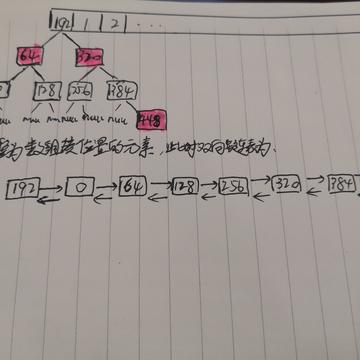 192 1 2 ...
64 320
128 256 384
null null null null null null
448
为数组该位置的元素,此时双向链表为:
192 0 64 128 256 320 384